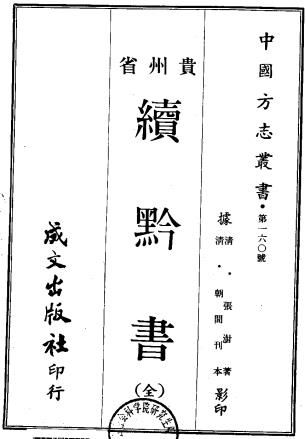 中國方志叢書・第一六○號
據
清・張澍著
清・朝間刊本
影印
貴州省
續黔書
(全)
成文出版社印行
科学院研究生